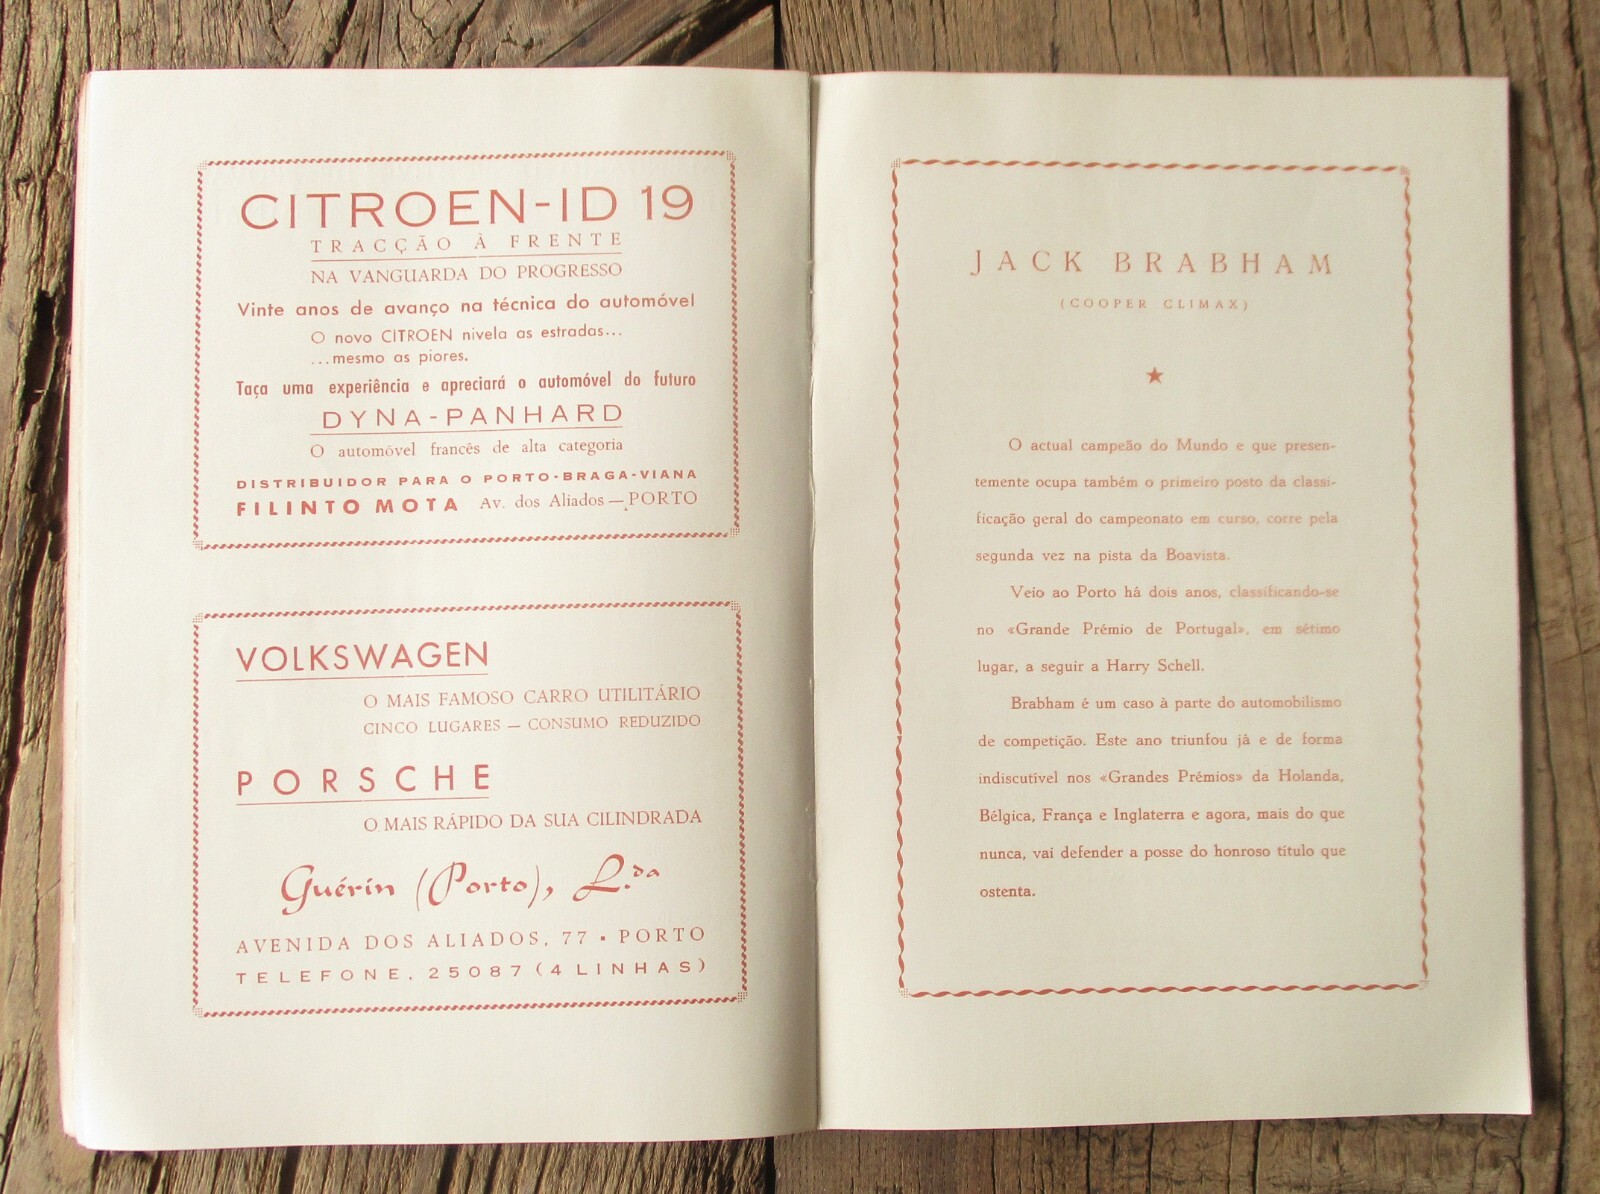 CITROEN-ID 19
TRACÇÃO À FRENTE
NA VANGUARDA DO PROGRESSO
Vinte anos de avanço na técnica do automóvel
O novo CITROEN nivela as estradas...
...mesmo as piores.
Taça uma experiência e apreciará o automóvel do futuro
DYNA-PANHARD
O automóvel francês de alta categoria
DISTRIBUIDOR PARA O PORTO-BRAGA-VIANA
FILINTO MOTA Av. dos Aliados — PORTO
VOLKSWAGEN
O MAIS FAMOSO CARRO UTILITÁRIO
CINCO LUGARES — CONSUMO REDUZIDO
PORSCHE
O MAIS RÁPIDO DA SUA CILINDRADA
Guérin (Porto), L.da
AVENIDA DOS ALIADOS, 77 • PORTO
TELEFONE, 25087 (4 LINHAS)
JACK BRABHAM
(COOPER CLIMAX)
O actual campeão do Mundo e que presen-
temente ocupa também o primeiro posto da classi-
ficação geral do campeonato em curso, corre pela
segunda vez na pista da Boavista.
Veio ao Porto há dois anos, classificando-se
no «Grande Prémio de Portugal», em sétimo
lugar, a seguir a Harry Schell.
Brabham é um caso à parte do automobilismo
de competição. Este ano triunfou já e de forma
indiscutível nos «Grandes Prémios» da Holanda,
Bélgica, França e Inglaterra e agora, mais do que
nunca, vai defender a posse do honroso título que
ostenta.